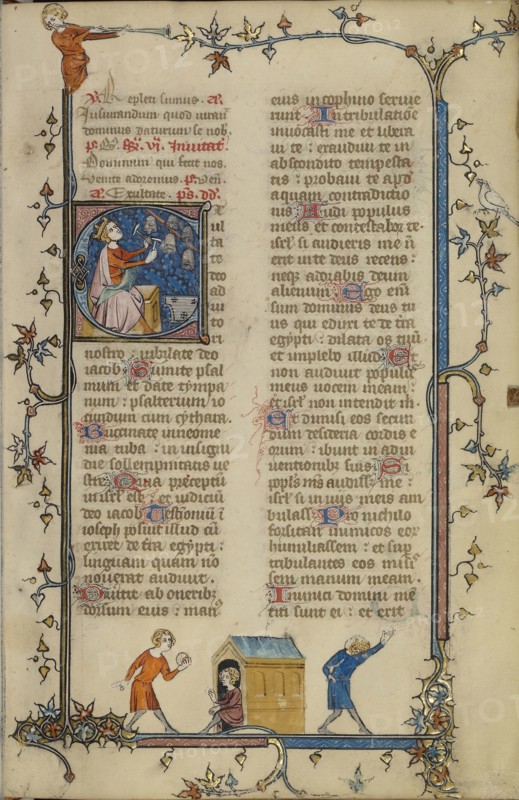 R Repleti sumus. R.
Iusiurandum quod iurauit
dominus daturum se nob.
ps. Inuitat.
Dominum qui fecit nos.
Venite adoremus. ps. Veni
a. Exultate. ps. dd.
E
xul
ta
te
deo
ad
iu
to
ri
nostro iubilate deo
iacob Sumite psal
mum et date tympa
num : psalterium io
cundum cum cythara.
Buccinate in neome
nia tuba : in insigni
die sollempnitatis ue
stre Quia preceptum
in isrl est : et iudicium
deo iacob Testimonium i
ioseph posuit illud cū
exiret de tra egypti :
linguam quam no
nouerat audiuit.
Diuertit ab oneribz
dorsum eius : man
eius in cophino seruie
runt In tribulatiōe
inuocasti me et libera
ui te : exaudiui te in
abscondito tempesta
tis : probaui te apd
aquam contradictio
nis Audi populus
meus et contestabor te.
isrl si audieris me n
erit in te deus recens :
neqz adorabis deum
alienum : Ego enī
sum dominus deus tu
us qui eduxi te de tra
egypti : dilata os tuū
et implebo illud Et
non audiuit populus
meus uocem meam :
et isrl non intendit m.
Et dimisi eos secun
dum desideria cordis e
orum : ibunt in adin
uentionibz suis Si
popls ms audisset me :
isrl si in uijs meis am
bulasset Pro nichilo
forsitan inimicos eor
humiliassem : et sup
tribulantes eos misis
sem manum meam.
Inimici domini mē
titi sunt ei : et erit
PHOTO12